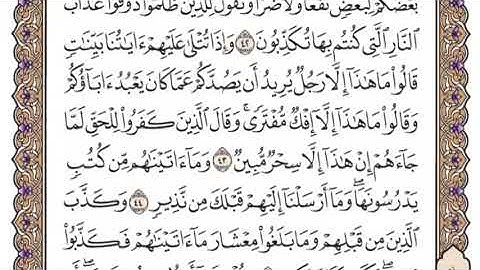 بَعْضُكُمْ لِبَعْضٍ نَّفْعًا وَلَا ضَرًّا وَنَقُولُ لِلَّذِينَ ظَلَمُوا۟ ذُوقُوا۟ عَذَابَ
ٱلنَّارِ ٱلَّتِى كُنتُم بِهَا تُكَذِّبُونَ ٤٢ وَإِذَا تُتْلَىٰ عَلَيْهِمْ ءَايَٰتُنَا بَيِّنَٰتٍ
قَالُوا۟ مَا هَٰذَآ إِلَّا رَجُلٌ يُرِيدُ أَن يَصُدَّكُمْ عَمَّا كَانَ يَعْبُدُ ءَابَآؤُكُمْ
وَقَالُوا۟ مَا هَٰذَآ إِلَّآ إِفْكٌ مُّفْتَرًى ۚ وَقَالَ ٱلَّذِينَ كَفَرُوا۟ لِلْحَقِّ لَمَّا
جَآءَهُمْ إِنْ هَٰذَآ إِلَّا سِحْرٌ مُّبِينٌ ٤٣ وَمَآ ءَاتَيْنَٰهُم مِّن كُتُبٍ
يَدْرُسُونَهَا ۖ وَمَآ أَرْسَلْنَآ إِلَيْهِمْ قَبْلَكَ مِن نَّذِيرٍ ٤٤ وَكَذَّبَ
ٱلَّذِينَ مِن قَبْلِهِمْ وَمَا بَلَغُوا۟ مِعْشَارَ مَآ ءَاتَيْنَٰهُمْ فَكَذَّبُوا۟